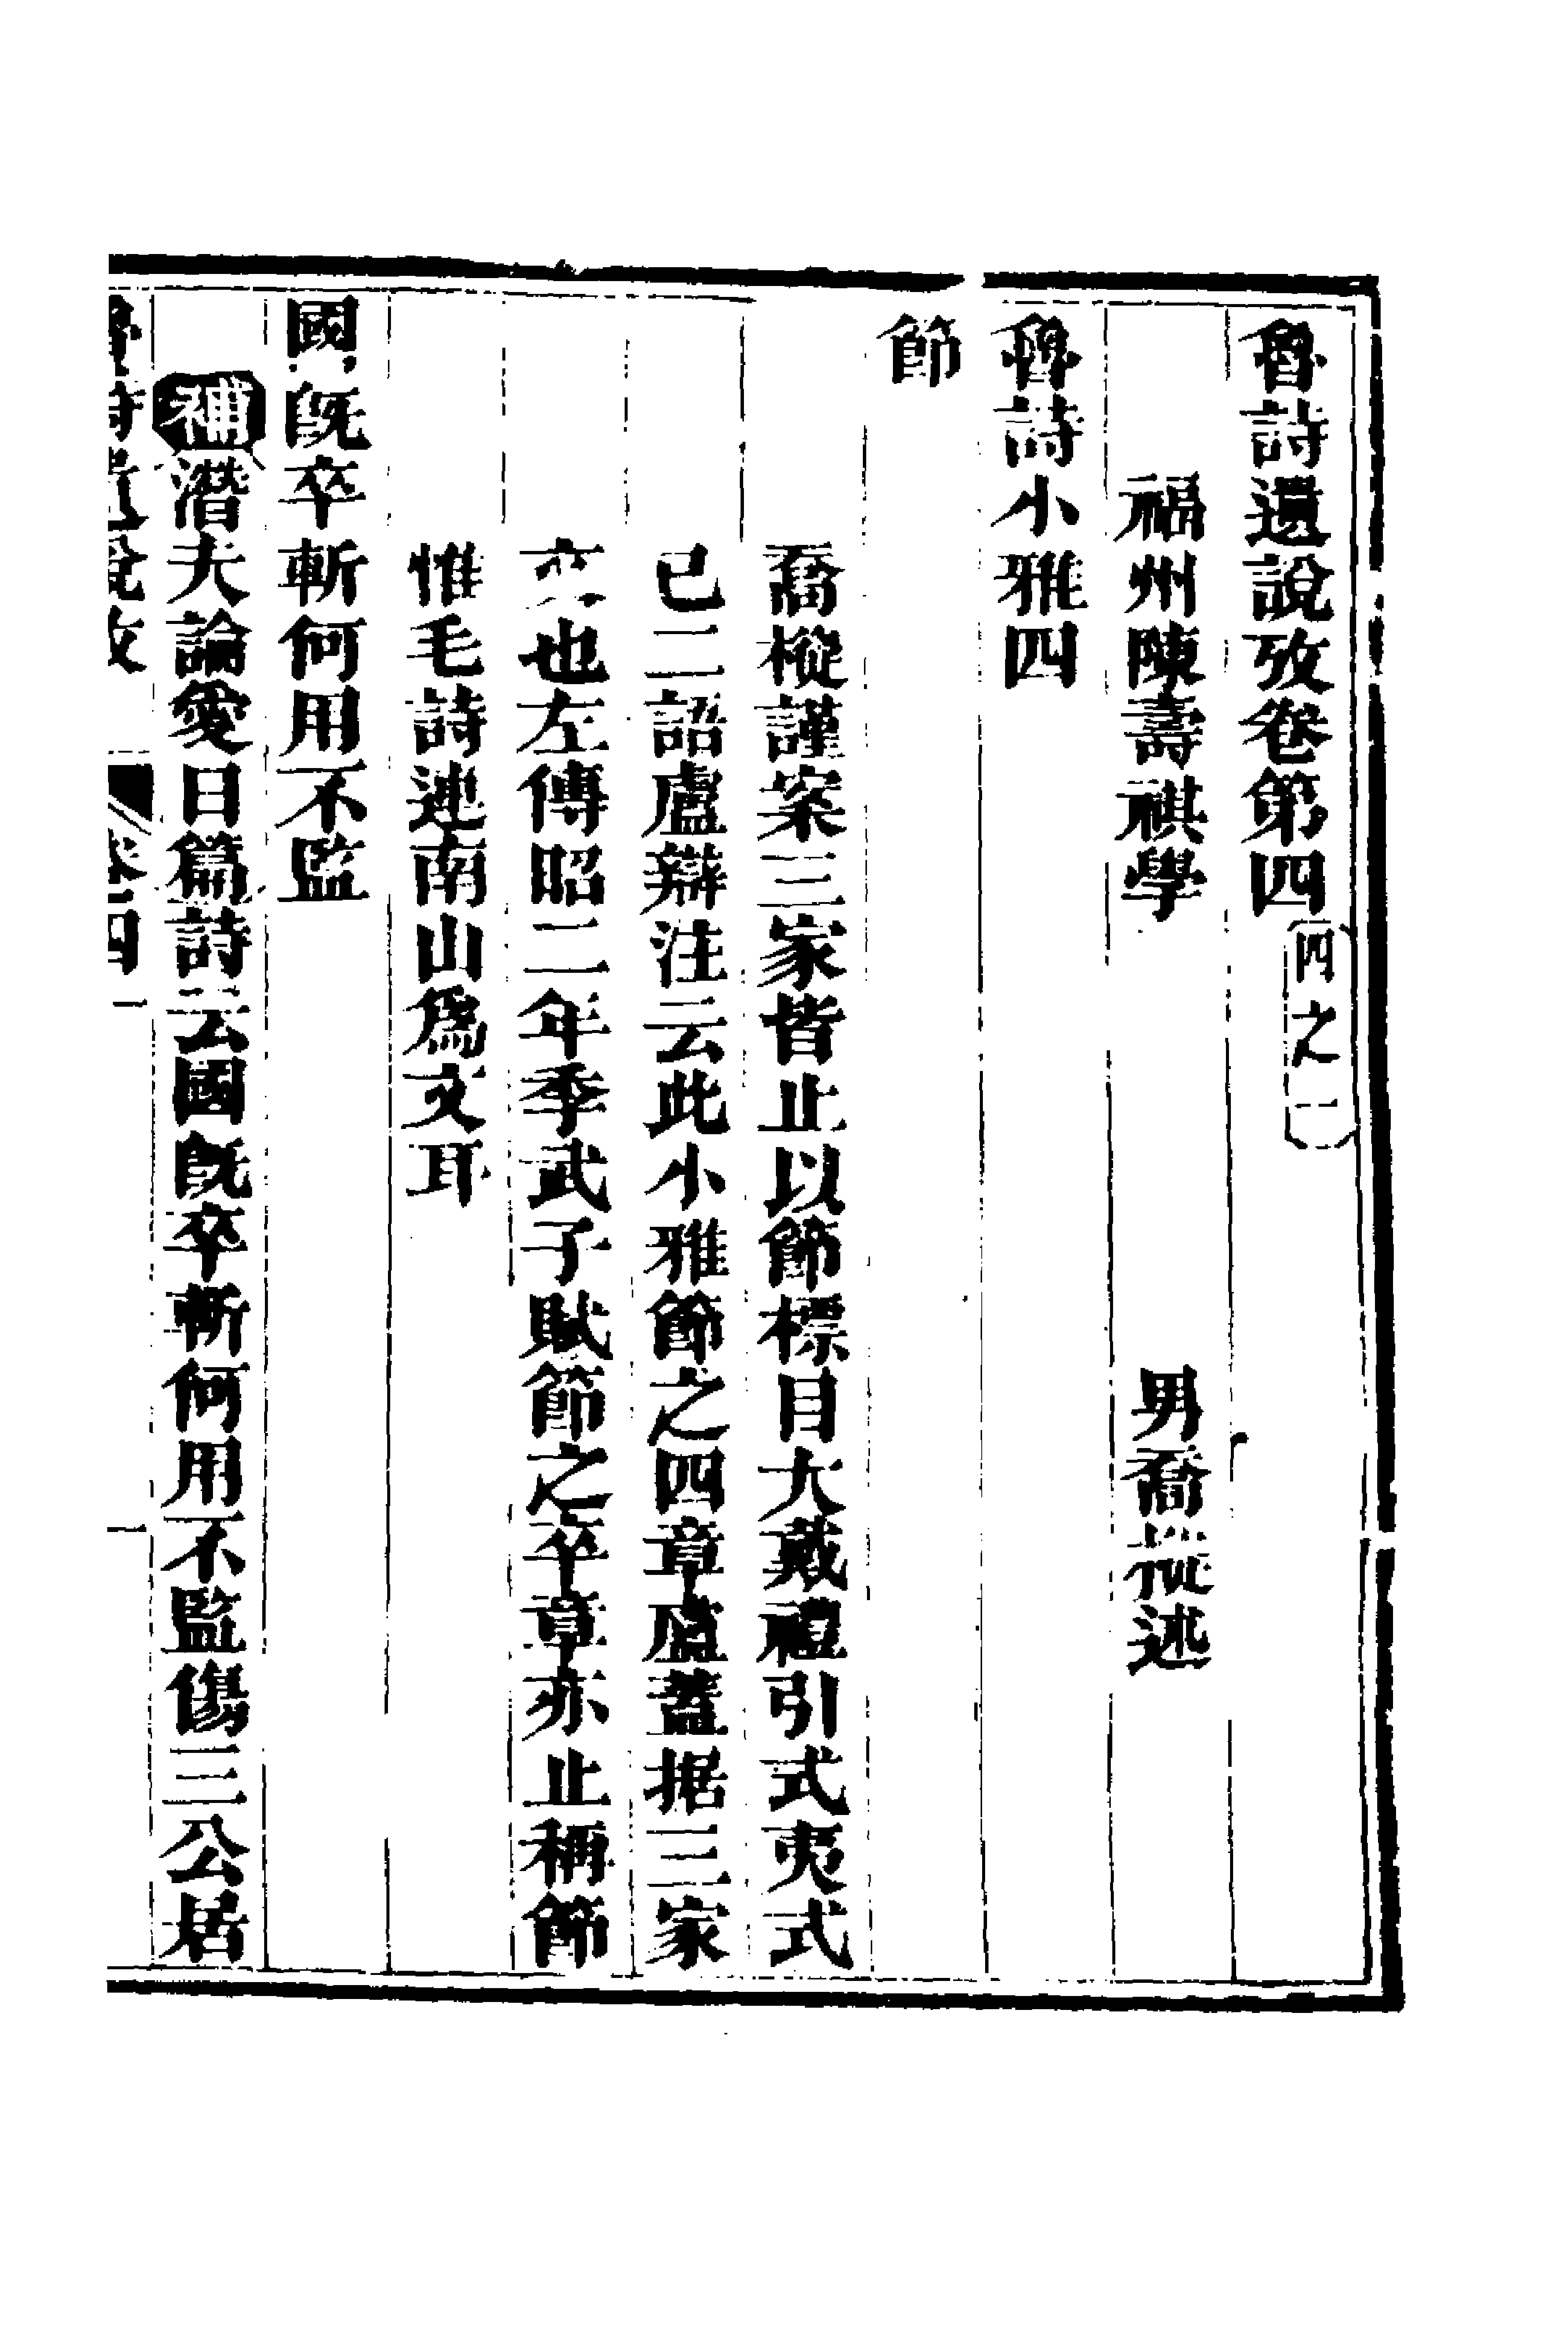 魯詩遺說攷卷第四 四之一
福州陳壽祺學 男喬樅述
魯詩小雅四
節
喬樅謹案三家皆止以節標目大戴禮引式夷式
已二語盧辯注云此小雅節之四章盧蓋据三家
文也左傳昭二年季武子賦節之卒章亦止稱節
惟毛詩連南山爲文耳
國旣卒斬何用不監
補潛夫論愛日篇詩云國旣卒斬何用不監傷三公居
魯詩遺說攷 卷四一 一